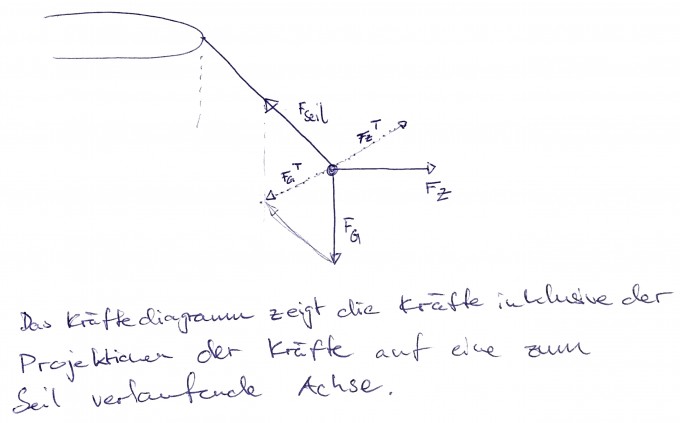 F_Seil
F_Z^T
F_G^T
F_Z
F_G
Das Kräftediagramm zeigt die Kräfte inklusive der
Projektionen der Kräfte auf eine zum
Seil verlaufende Achse.